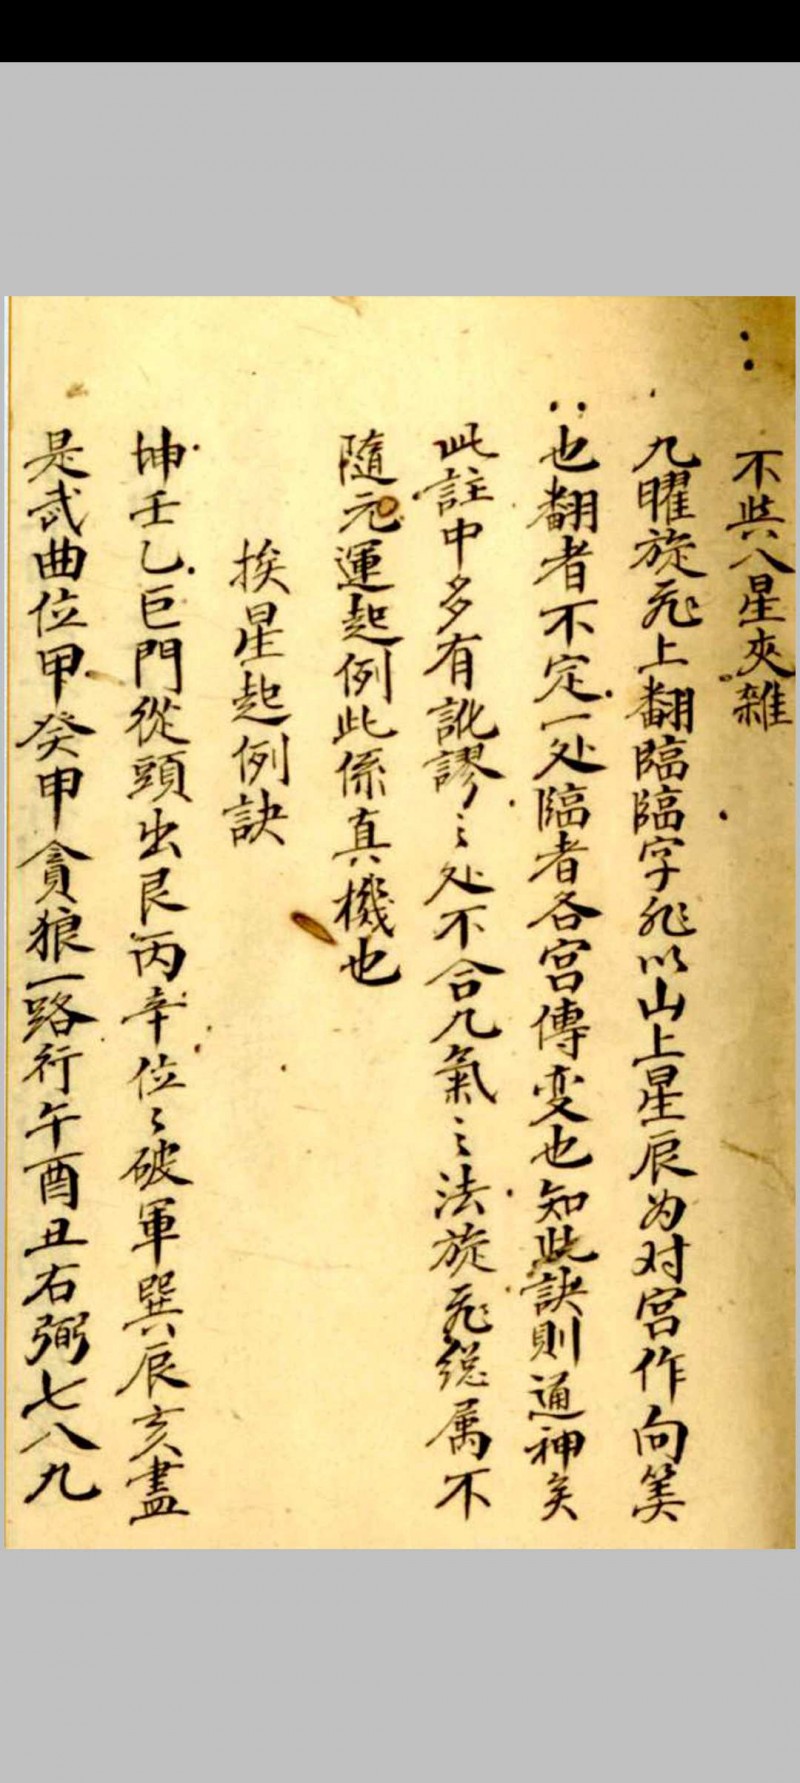 不與八星夾雜
九曜旋飛上翻臨臨字非以山上星辰为对宫作向筭
也翻者不定一处臨者各宫傳变也知此訣則通神矣
此註中多有訛謬之处不合几氣之法旋飛總属不
隨元運起例此係真機也
挨星起例訣
坤壬乙巨門從頭出艮丙辛位〻破軍巽辰亥盡
是武曲位甲癸申貪狼一路行午酉丑右弼七八九